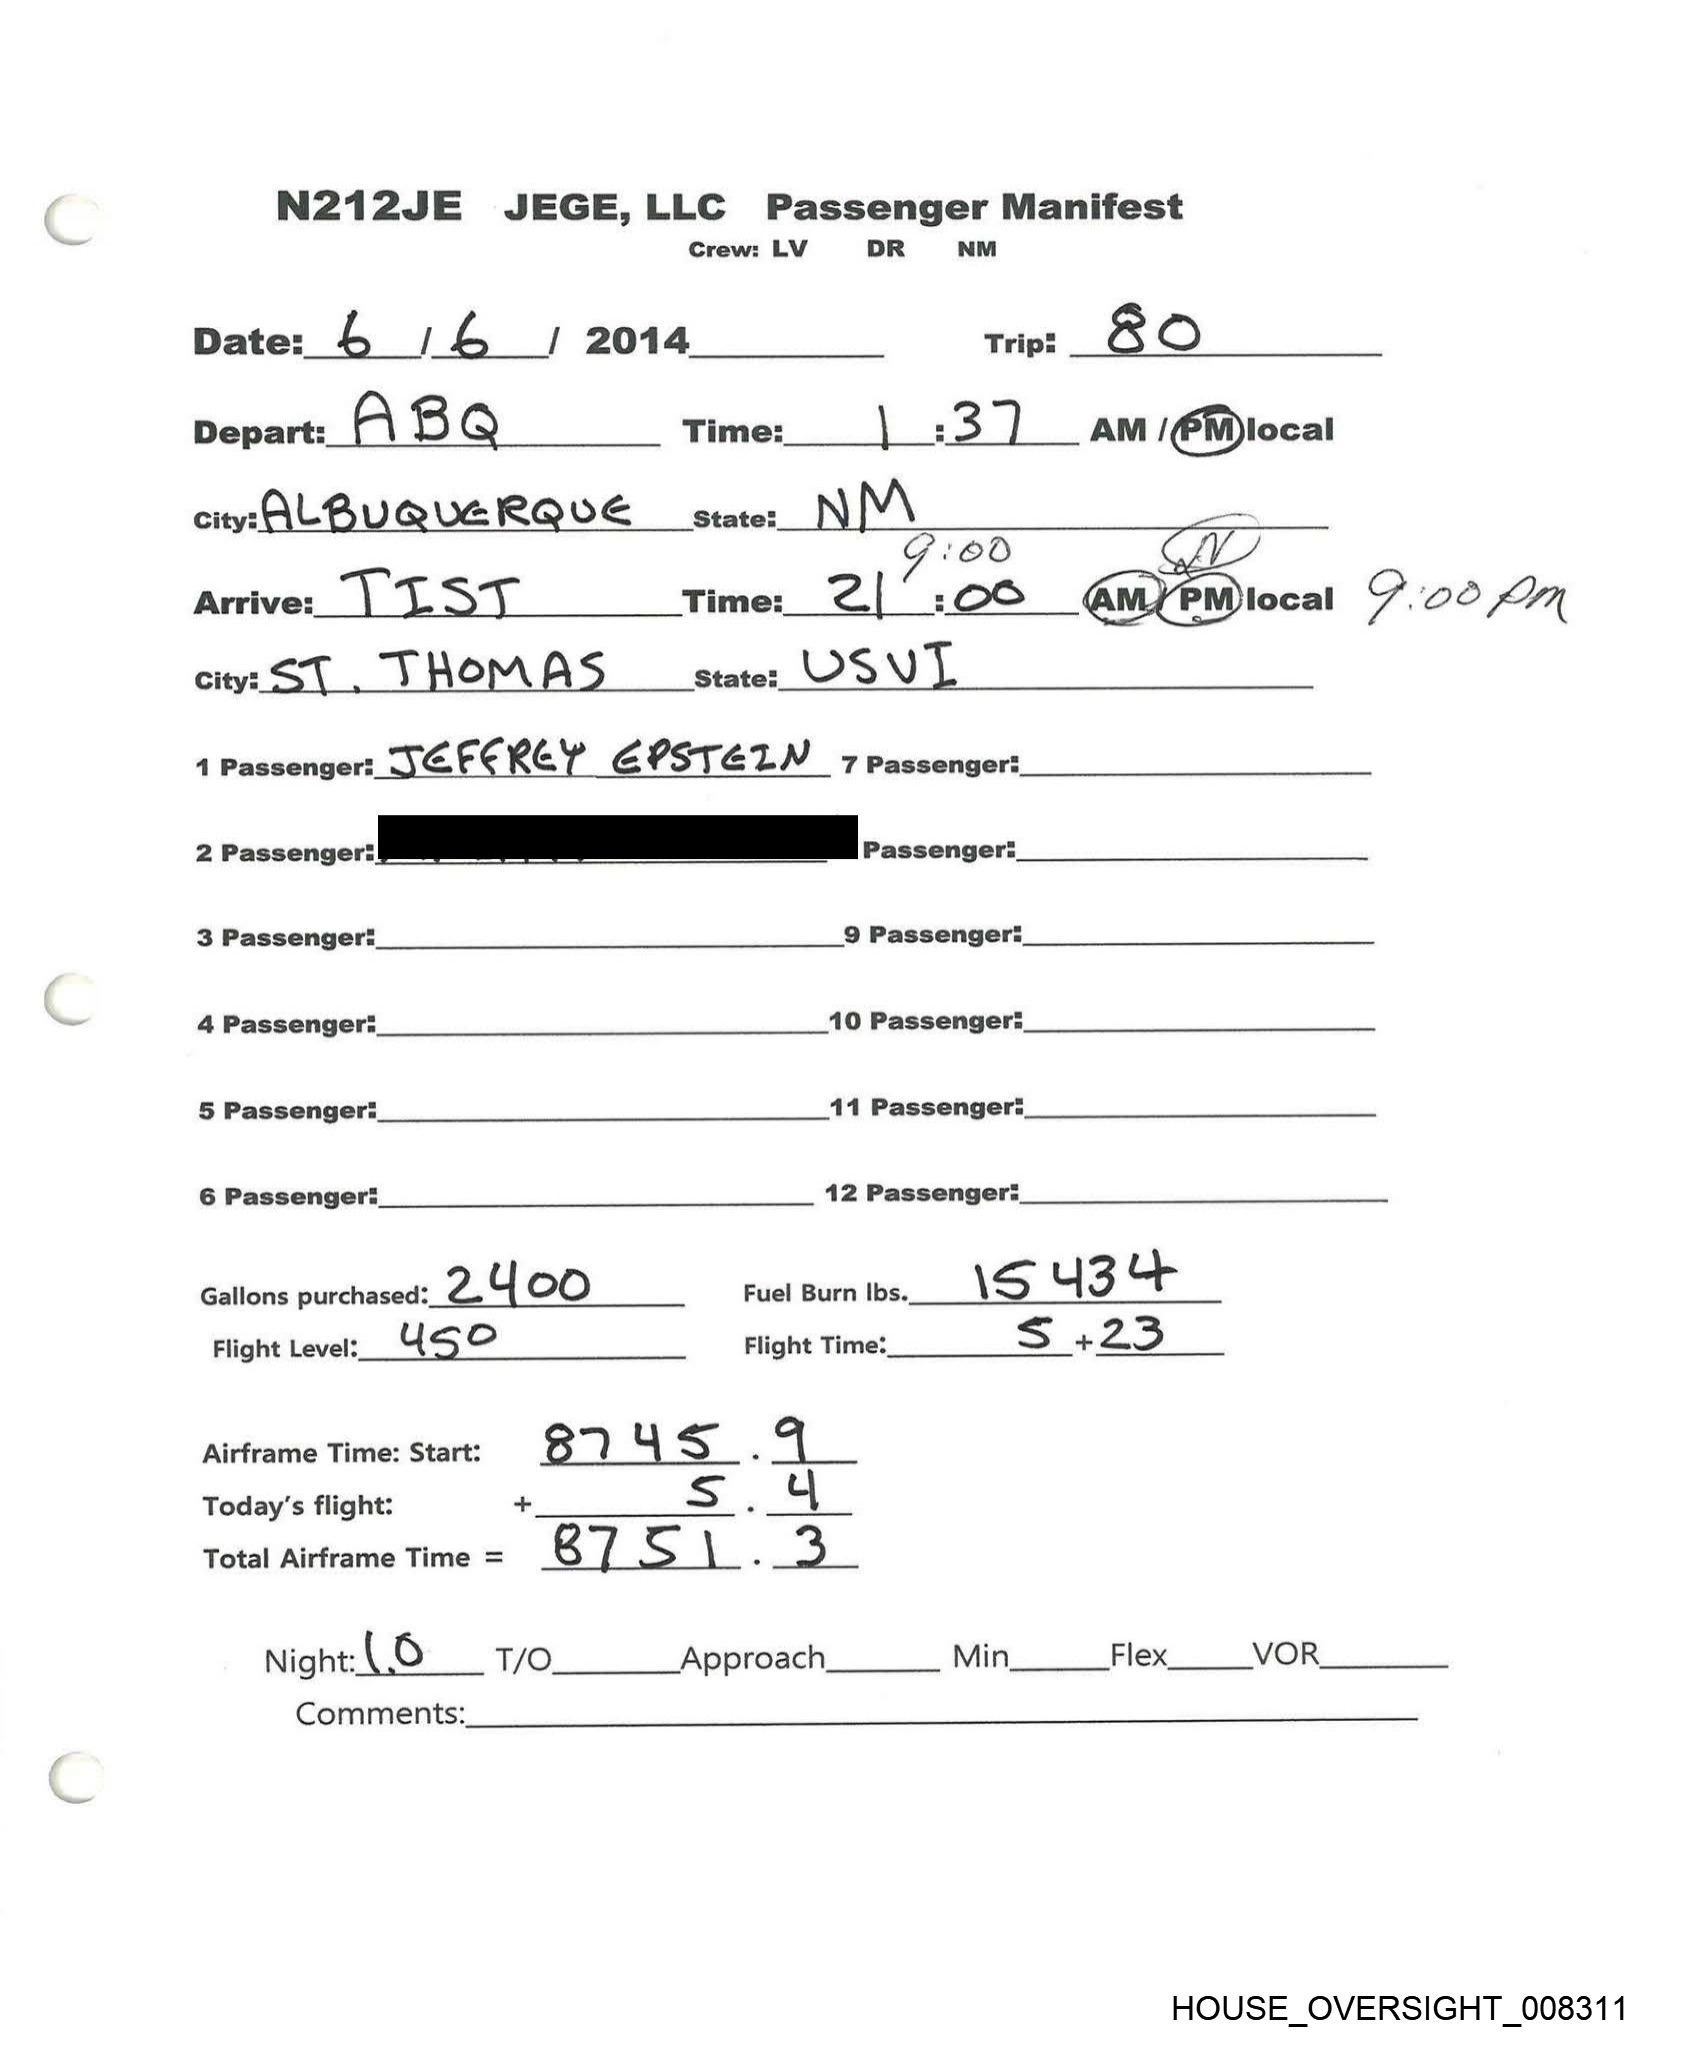 N212JE JEGE, LLC Passenger Manifest
Crew: LV DR NM
Date: 6 / 6 / 2014 Trip: 80
Depart: ABQ Time: 1 : 37 AM / PM local
City: ALBUQUERQUE State: NM
9:00 N
Arrive: TIST Time: 21 : 00 AM / PM local 9:00 pm
City: ST. THOMAS State: USVI
1 Passenger: JEFFREY EPSTEIN 7 Passenger:
2 Passenger: Passenger:
3 Passenger: 9 Passenger:
4 Passenger: 10 Passenger:
5 Passenger: 11 Passenger:
6 Passenger: 12 Passenger:
Gallons purchased: 2400 Fuel Burn lbs. 15434
Flight Level: 450 Flight Time: 5 + 23
Airframe Time: Start: 8745 . 9
Today's flight: + 5 . 4
Total Airframe Time = 8751 . 3
Night: 1.0 T/O Approach Min Flex VOR
Comments:
HOUSE_OVERSIGHT_008311